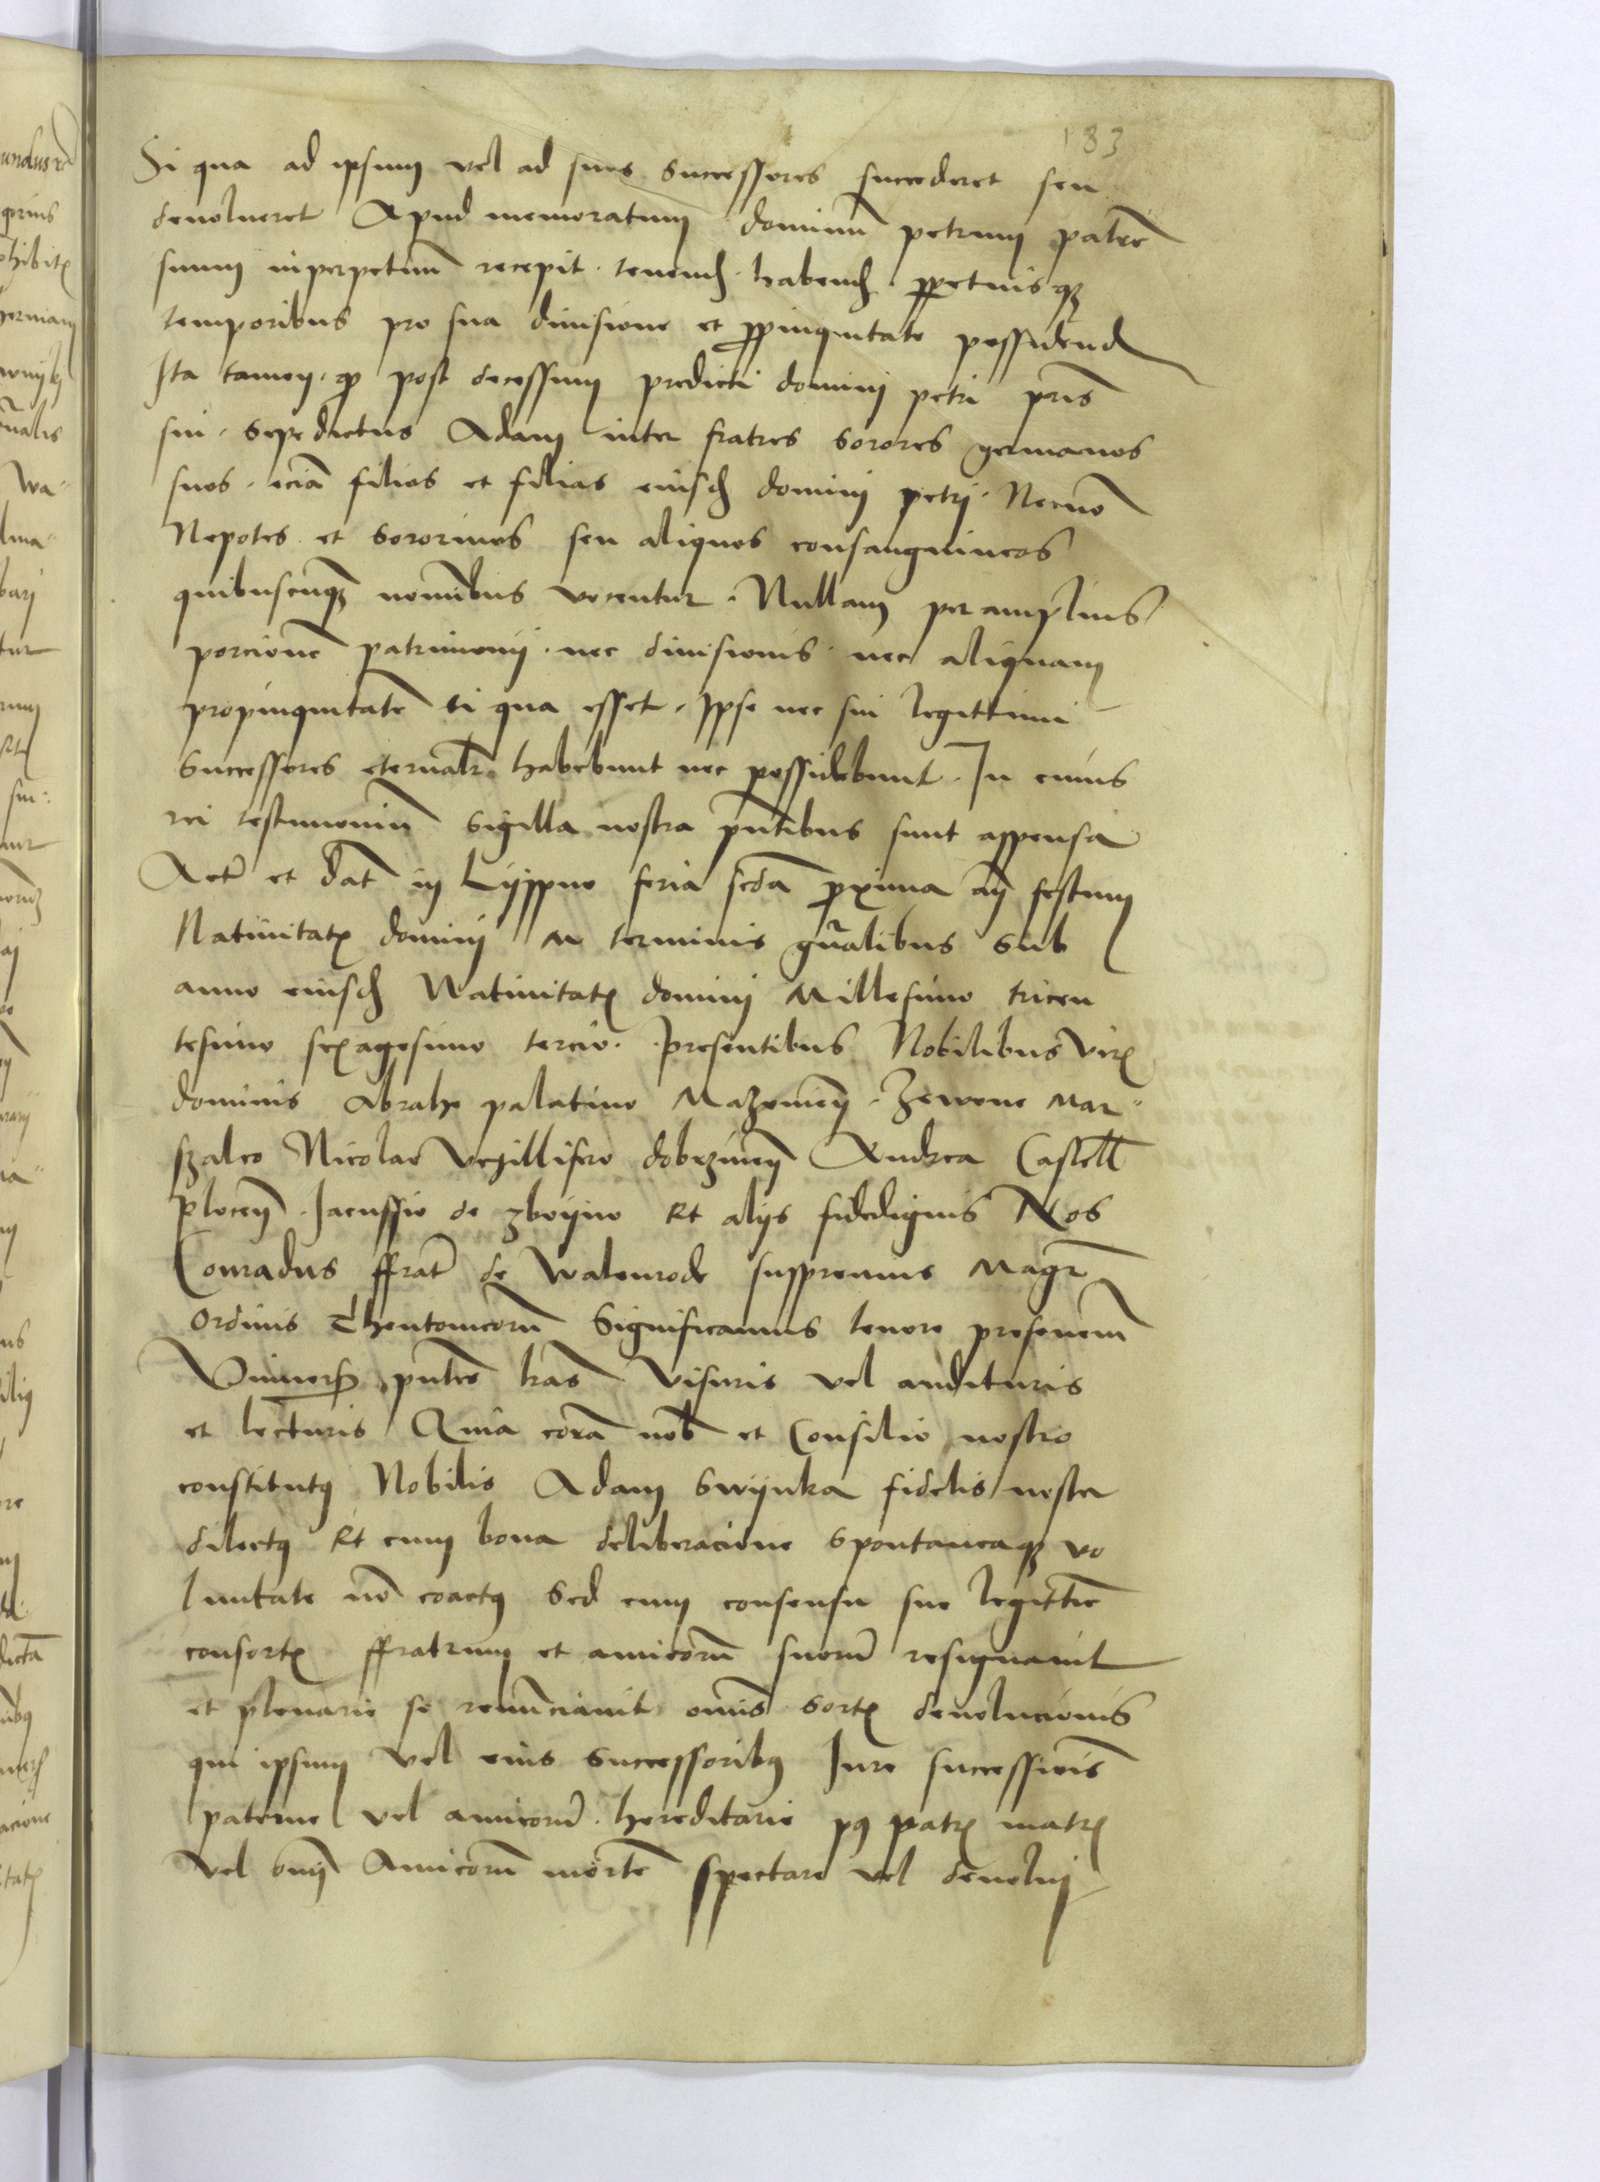 183
Si qua ad ipsum vel ad suos successores succederet seu
devolueret Apud memoratum dominũ petrum patrẽ
suum inperpetuũ recepit · tenend habend ꝑpetuisqꝫ
temporibus pro sua diuisione et ꝓpinquitate possidend
Ita tamen · ꝙ post decessum predicti dominj petri pr̃is
sui · Sepedictus Adam inter fratres Sorores germanos
suos · eciã filios et filias eiusd dominj petrj · Necnõ
Nepotes et Sororinos seu aliquos consanguineos
quibuscũqꝫ nominibus vocentur · Nullam peramplius
porcionẽ patrimonij · nec diuisionis nec aliquam
propinquitatẽ si qua esset · Ipse nec sui legittimi
Successores eternalr habebunt nec possidebunt · In cuius
rei testimoniũ Sigilla nostra pñtibus sunt appensa
Actũ et dat̃ in Lÿppno feria scda ꝓxima añ festum
Natiuitatꝭ dominj in terminis gñalibus Sub
anno eiusd Natiuitatꝭ dominj Millesimo tricen
tesimo sexagesimo tercio · Presentibus Nobilibus virꝭ
dominis Abrahe palatino Mazouieñ · Zewone Mar⸗
szalco Nicolao Vexillifero dobrzineñ Andrea Castell̃
Ploceñ · Jacussio de zboÿno Et alijs fidedignis Nos
Conradus ffrat̃ de Walenrode suppremus Magr̃
Ordinis Theutonicorũ Significamus tenore presenciũ
Vniuersꝭ pñtes lr̃as Visuris vel audituris
et lecturis Quia corã nob̃ et Consilio nostro
constitutꝰ Nobilis Adam Swÿnka fidelis noster
dilectꝰ Et cum bona deliberacione Spontaneaqꝫ vo
luntate nõ coactꝰ Sed cum consensu sue legittĩe
consortꝭ ffratrum et amicorũ suorũ resignauit
et plenarie se renũciauit om̃is Sortꝭ deuolucionis
qui ipsum Vel eius Successoribꝰ Jure successiõis
paterne vel amicorũ · hereditarie pꝰ patrꝭ matrꝭ
Vel Amicorũ mortẽ Spectare vel deuoluj